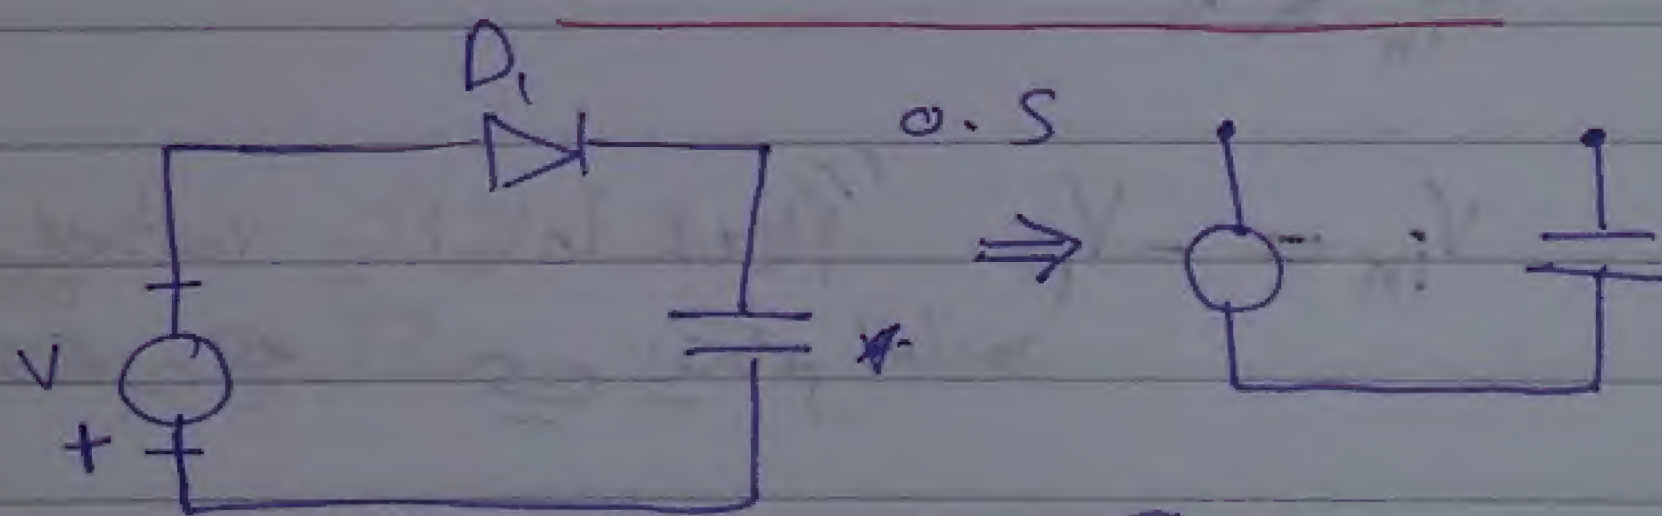 D₁
o. S
V
+